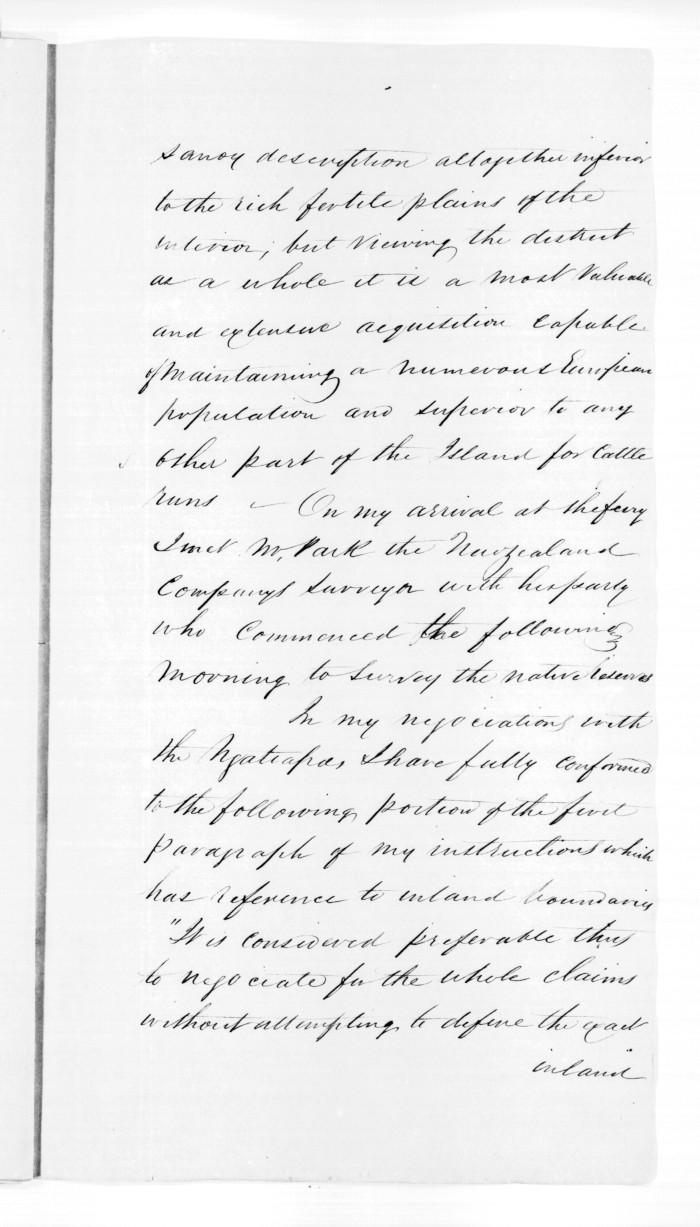 sandy description altogether inferior
to the rich fertile plains of the
interior; but viewing the district
as a whole it is a most valuable
and extensive acquisition capable
of maintaining a numerous European
population and superior to any
other part of the Island for Cattle
runs — On my arrival at the ferry
I met Mr. Park the New Zealand
Companys Surveyor with his party
who commenced the following
morning to survey the native reserves
In my negociations with
the Ngatiapas I have fully conformed
to the following portion of the first
paragraph of my instructions which
has reference to inland boundaries
"It is considered preferable thus
to negociate for the whole claims
without attempting to define the exact
inland"